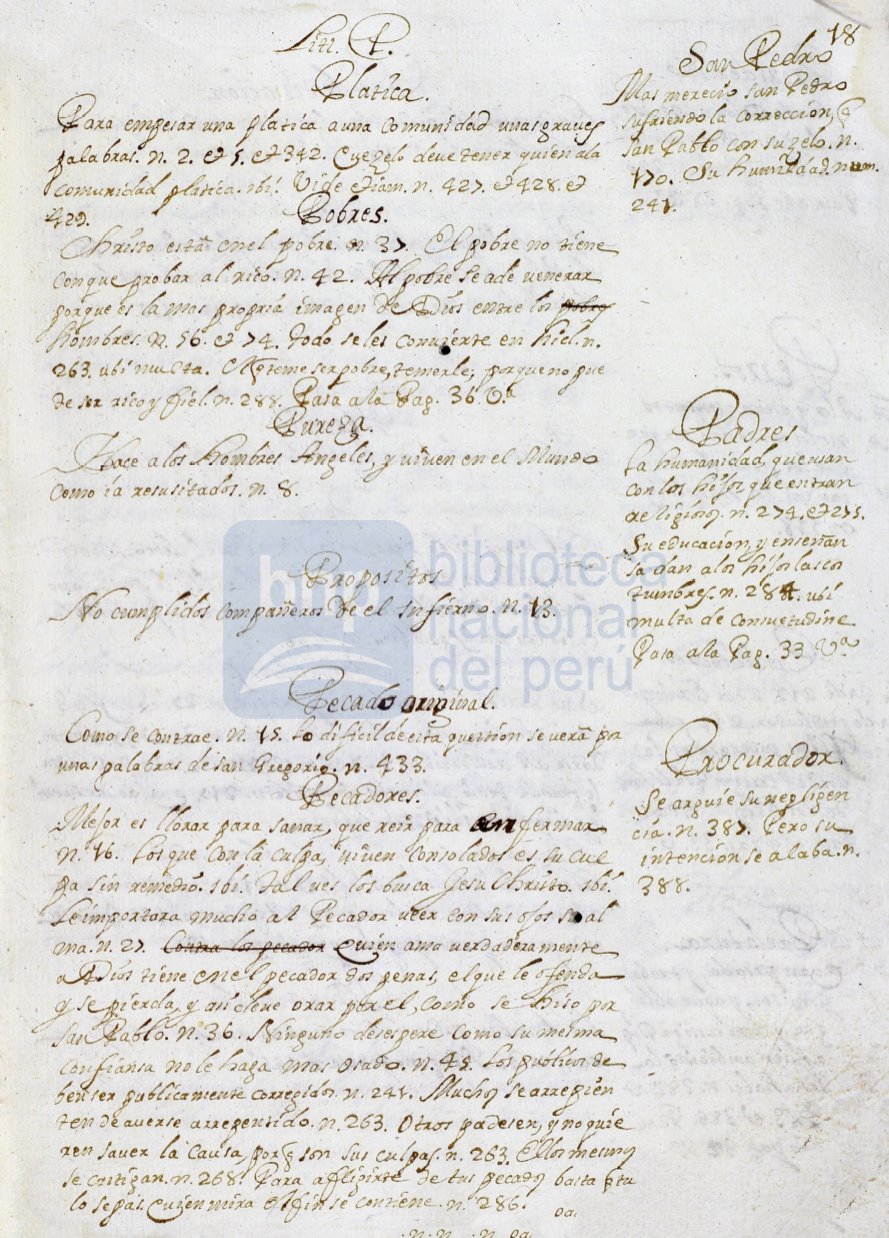 18
Litt. P.
Platica.
Para empesar una platica a una comunidad unas graves
palabras. n. 2. et 5. et 342. Que zelo deve tener quien a la
comunidad platica. ibi. Vide etiam. n. 427. et 428. et
429.
Pobres.
Christo està en el pobre. n. 37. El pobre no tiene
con que probar al rico. n. 42. Al pobre se a de venerar
porque es la mas propria imagen de Dios entre los pobres
hombres. n. 56. et 74. todo se les convierte en hiel. n.
263. ubi multa. teme ser pobre, temerle; porque no pue
de ser rico y fiel. n. 288. Pasa a la Pag. 36. Vª
Pureza.
Hace a los hombres Angeles, y viven en el Mundo
como ia resusitados. n. 8.
Propositos
No cumplidos compañeros de el infierno. n. 13.
Pecado original.
Como se contrae. n. 15. Lo dificil de esta question se verà por
unas palabras de san Gregorio. n. 433.
Pecadores.
Mejor es llorar para sanar, que reir para enfermar
n. 16. Los que con la culpa, viven consolados es su cul
pa sin remedio. ibi. Tal ves los busca Jesu Christo. ibi.
Le importara mucho al Pecador veer con sus ojos su al
ma. n. 27. Contra los pecador Quien ama verdaderamente
a Dios tiene en el pecador dos penas, el que le ofenda
y se pierda, y asi deve orar por el, como se hiso por
san Pablo. n. 36. Ninguno desespere como su mesma
confiansa no le haga mas osado. n. 45. Los publicos de
ben ser publicamente corregidos. n. 241. Muchos se arrepien
ten de averse arrepentido. n. 263. Otros padesen, y no quie
ren saver la causa, porq̃ son sus culpas. n. 263. Ellos mesmos
se castigan. n. 268. Para aflijirte de tus pecados basta q̃ tu
lo sepas. Quien mira el fin se contiene. n. 286.
San Pedro
Mas merecio san Pedro
sufriendo la correccion, q̃
san Pablo con su zelo. n.
170. Su humildad. num.
241.
Padres
La humanidad, que usan
con los hijos que entran
religiosos. n. 274. et 275.
Su educacion, y enseñan
sa dan a los hijos las cos
tumbres. n. 284. ubi
multa de consuetudine
Pasa a la Pag. 33 Vª
Procurador.
Se arguie su negligen
cia. n. 387. Pero su
intencion se alaba. n.
388.
bnp biblioteca
nacional
del perú